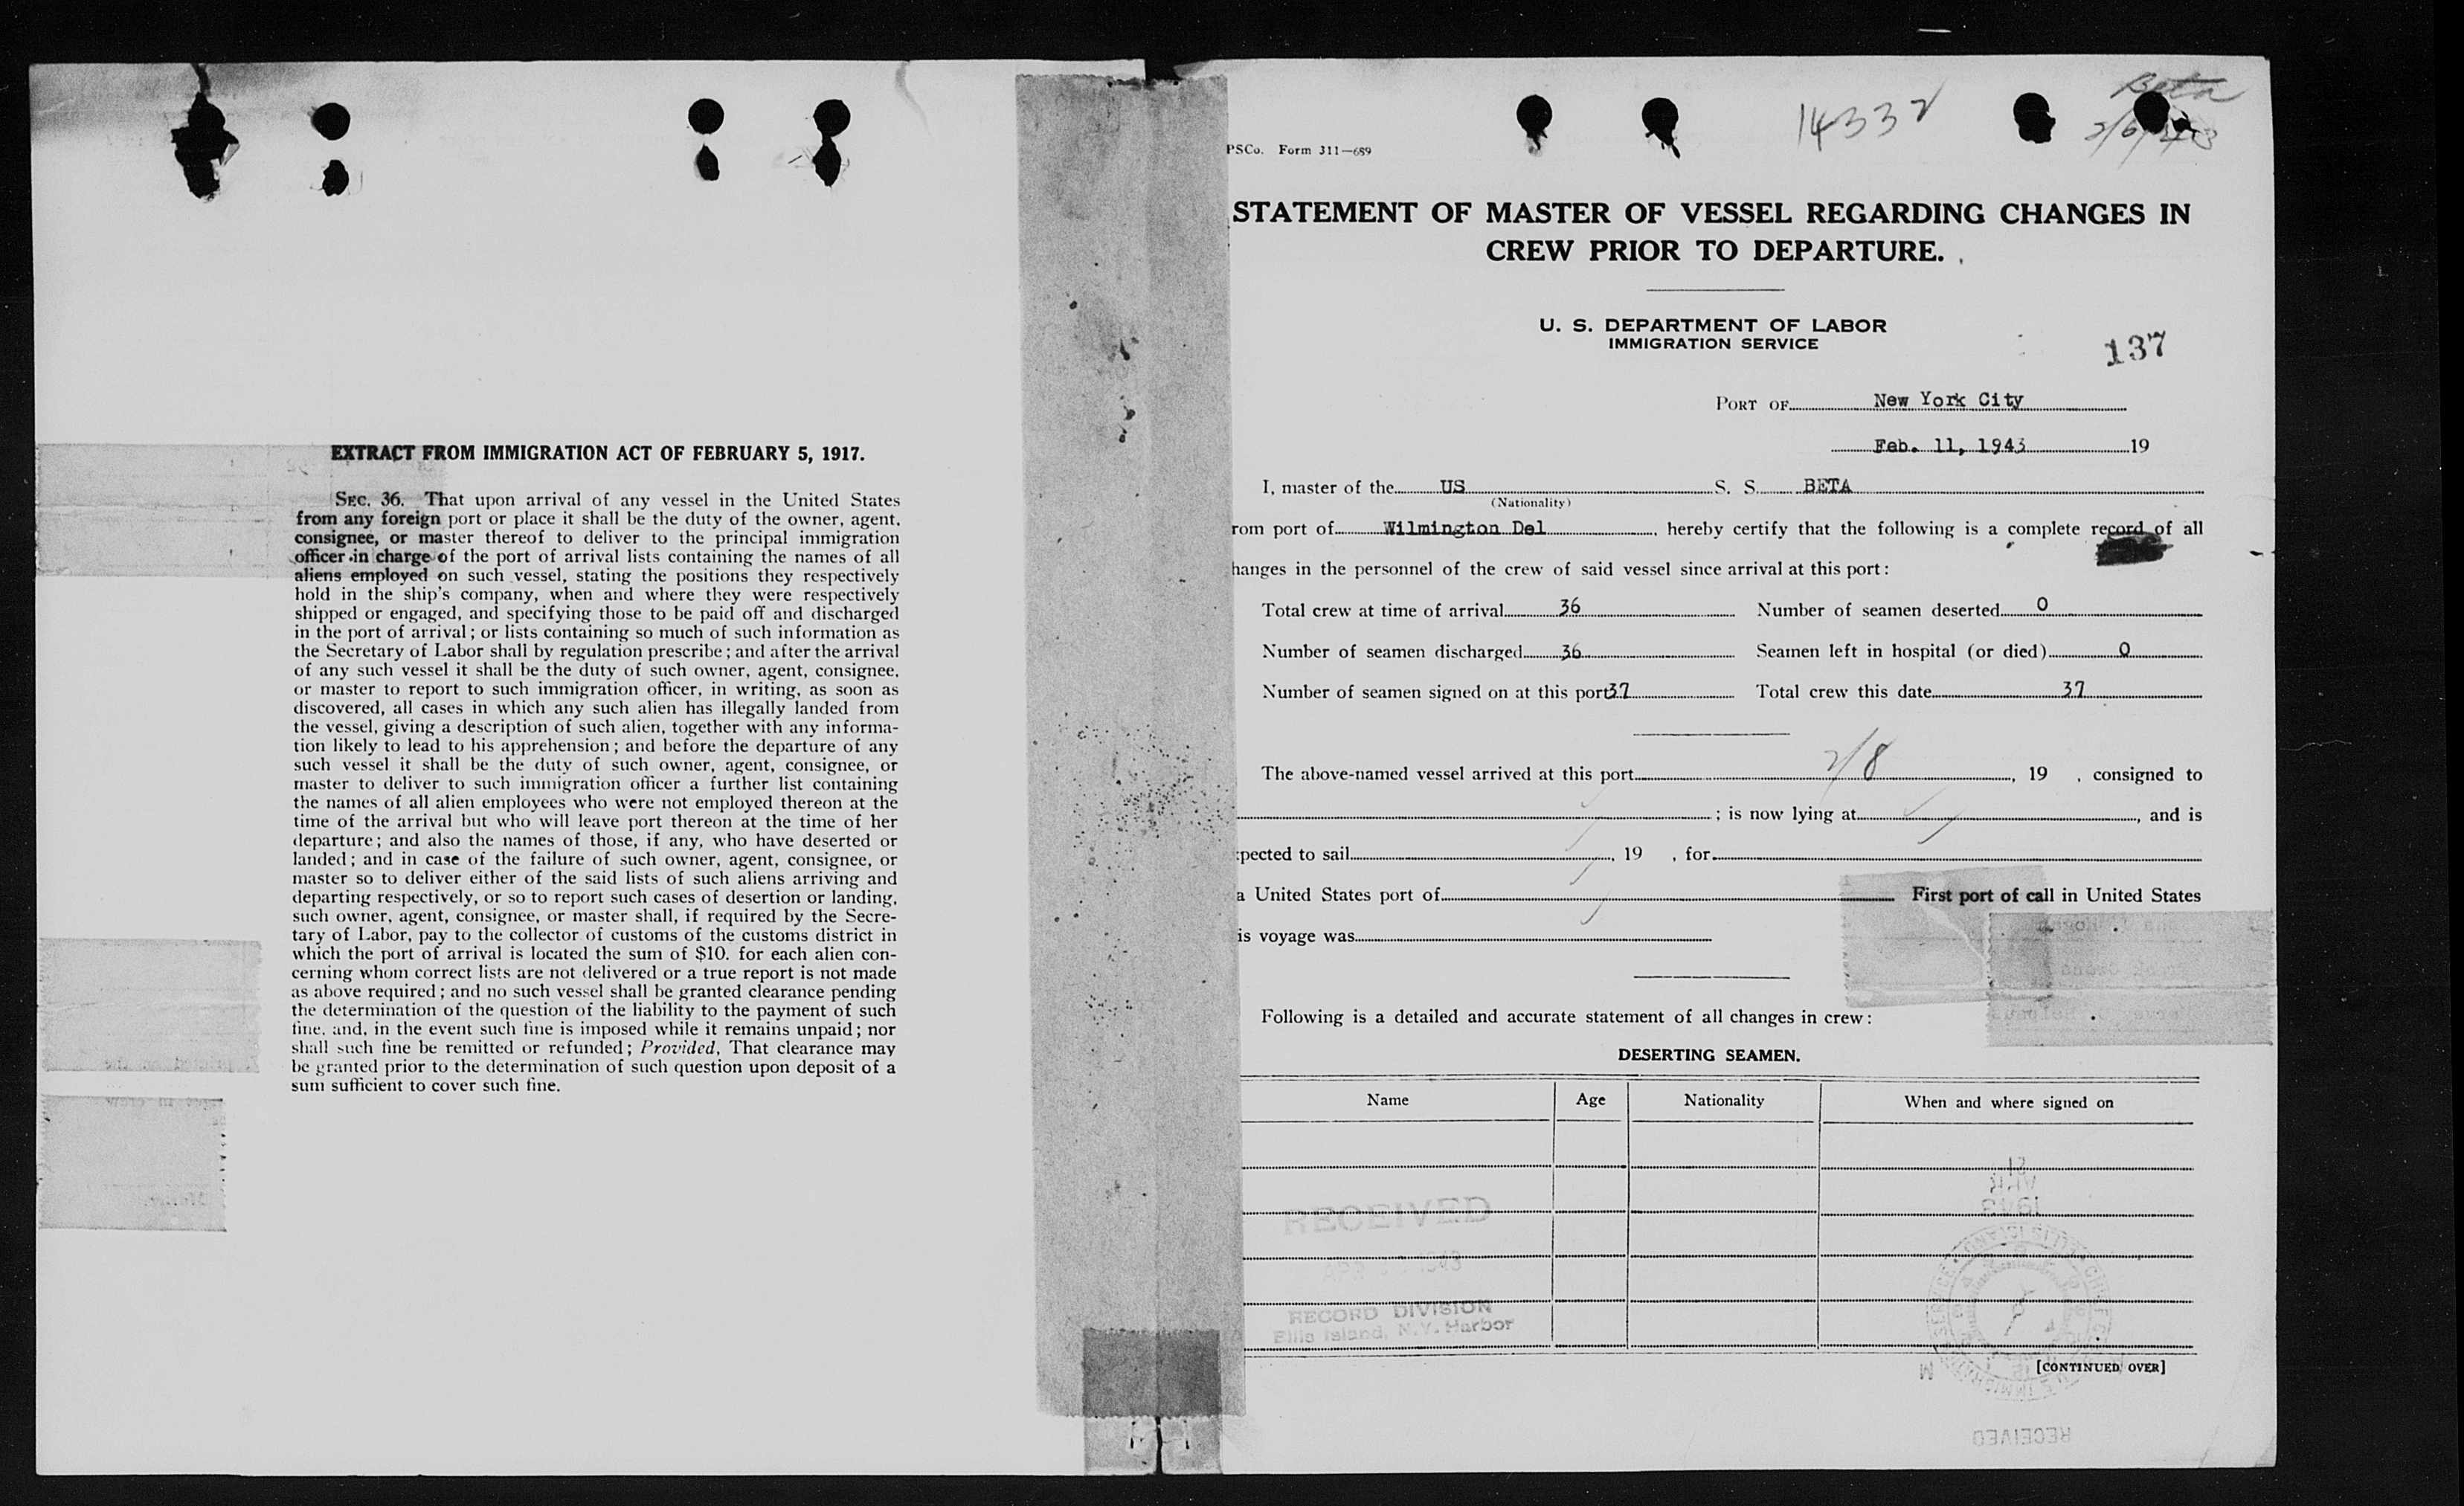 EXTRACT FROM IMMIGRATION ACT OF FEBRUARY 5, 1917.
SEC. 36. That upon arrival of any vessel in the United States
from any foreign port or place it shall be the duty of the owner, agent,
consignee, or master thereof to deliver to the principal immigration
officer in charge of the port of arrival lists containing the names of all
aliens employed on such vessel, stating the positions they respectively
hold in the ship's company, when and where they were respectively
shipped or engaged, and specifying those to be paid off and discharged
in the port of arrival; or lists containing so much of such information as
the Secretary of Labor shall by regulation prescribe; and after the arrival
of any such vessel it shall be the duty of such owner, agent, consignee,
or master to report to such immigration officer, in writing, as soon as
discovered, all cases in which any such alien has illegally landed from
the vessel, giving a description of such alien, together with any informa-
tion likely to lead to his apprehension; and before the departure of any
such vessel it shall be the duty of such owner, agent, consignee, or
master to deliver to such immigration officer a further list containing
the names of all alien employees who were not employed thereon at the
time of the arrival but who will leave port thereon at the time of her
departure; and also the names of those, if any, who have deserted or
landed; and in case of the failure of such owner, agent, consignee, or
master so to deliver either of the said lists of such aliens arriving and
departing respectively, or so to report such cases of desertion or landing,
such owner, agent, consignee, or master shall, if required by the Secre-
tary of Labor, pay to the collector of customs of the customs district in
which the port of arrival is located the sum of $10. for each alien con-
cerning whom correct lists are not delivered or a true report is not made
as above required; and no such vessel shall be granted clearance pending
the determination of the question of the liability to the payment of such
fine, and, in the event such fine is imposed while it remains unpaid; nor
shall such fine be remitted or refunded; Provided, That clearance may
be granted prior to the determination of such question upon deposit of a
sum sufficient to cover such fine.
14332
Beta
PSCo. Form 311—689
STATEMENT OF MASTER OF VESSEL REGARDING CHANGES IN
CREW PRIOR TO DEPARTURE.
U. S. DEPARTMENT OF LABOR
IMMIGRATION SERVICE
137
PORT OF New York City
Feb. 11, 1943 19
I, master of the US S. S. BETA
(Nationality)
rom port of Wilmington Del, hereby certify that the following is a complete record of all
hanges in the personnel of the crew of said vessel since arrival at this port:
Total crew at time of arrival 36 Number of seamen deserted 0
Number of seamen discharged 36 Seamen left in hospital (or died) 0
Number of seamen signed on at this port 37 Total crew this date 37
The above-named vessel arrived at this port 2/8, 19 , consigned to
; is now lying at , and is
pected to sail , 19 , for
a United States port of First port of call in United States
is voyage was
Following is a detailed and accurate statement of all changes in crew:
DESERTING SEAMEN.
Name Age Nationality When and where signed on
RECEIVED
1943
RECORD DIVISION
Ellis Island, N.Y. Harbor
[CONTINUED OVER]
RECEIVED